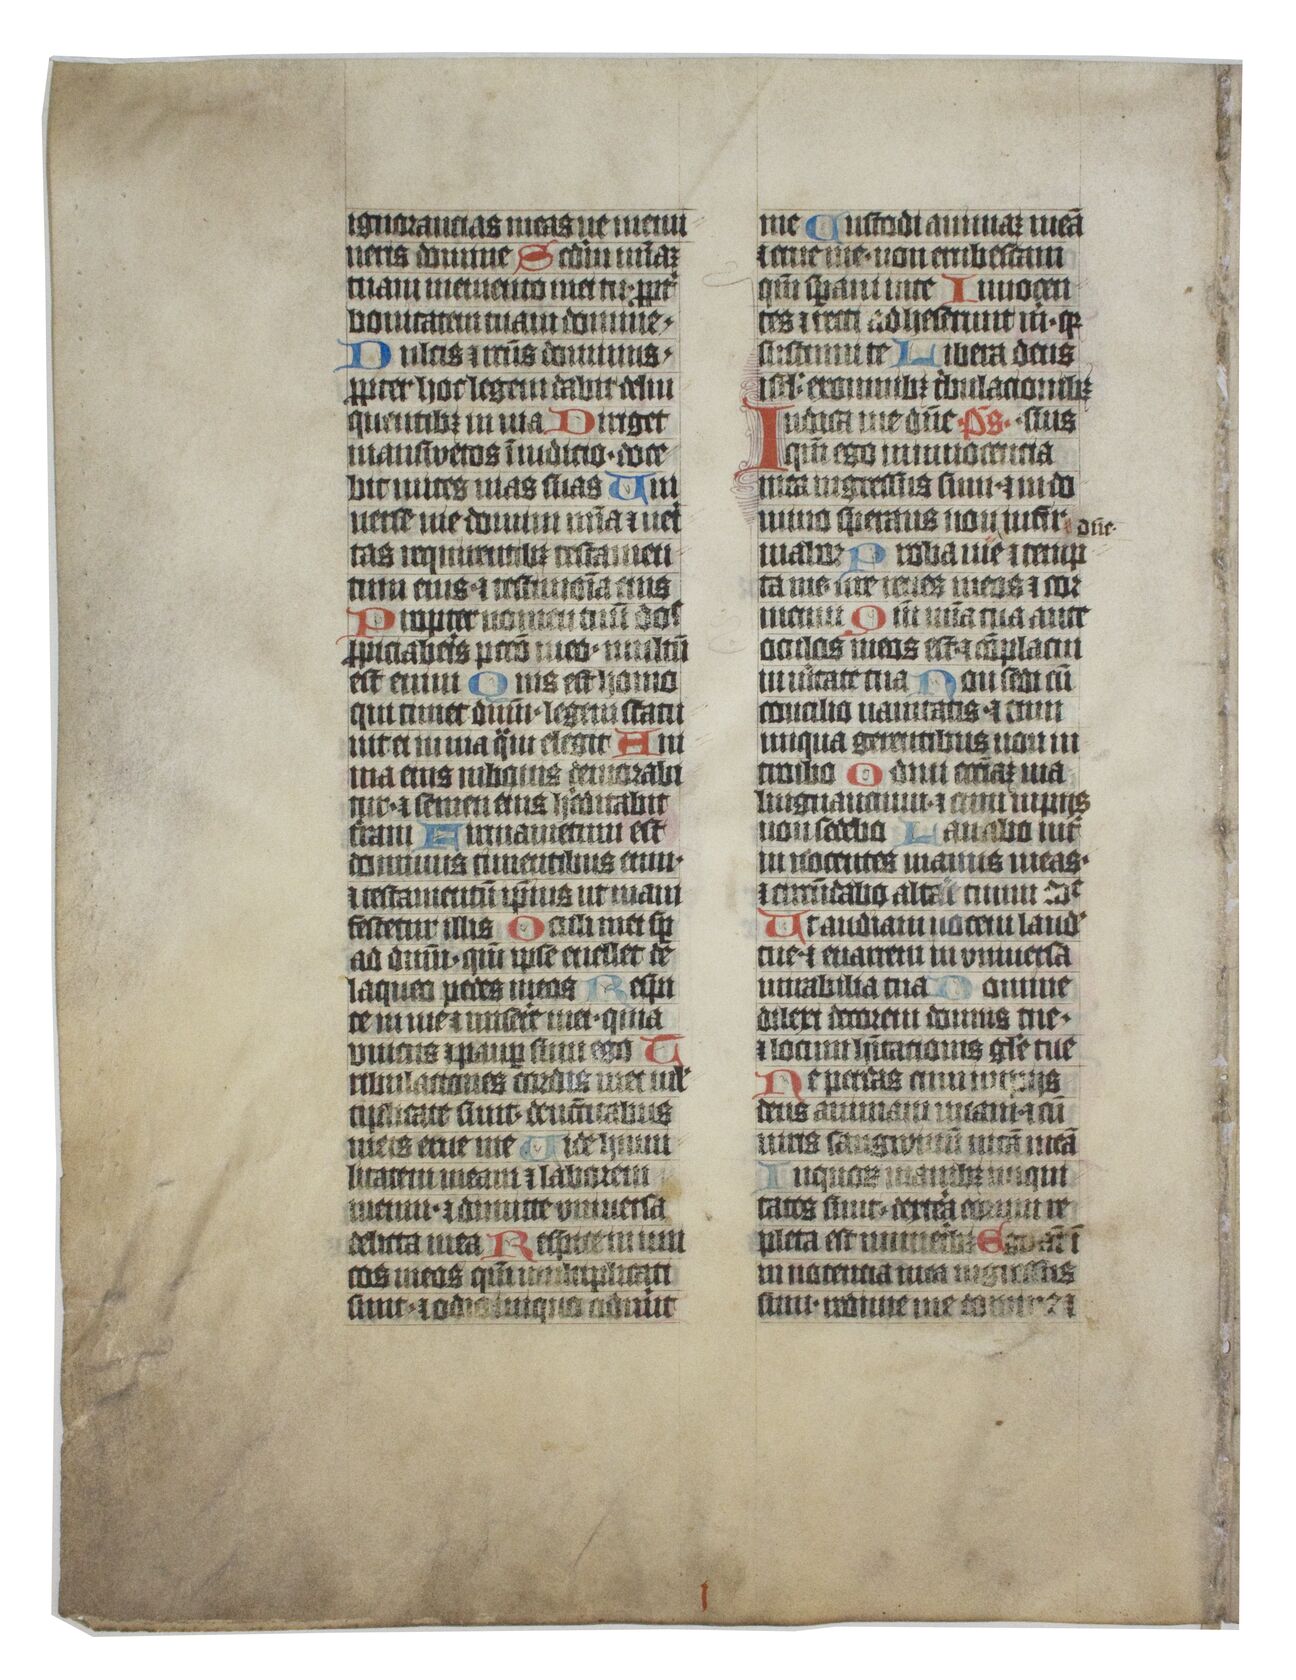 ignorancias meas ne memi
neris domine Scdm mīaꝫ
tuam memento mei tu· ꝓpt̄
bonitatem tuam domine·
Dulcis ⁊ rcūs dominus·
ꝓpter hoc legem dabit delin
quentibꝫ in uia Diriget
mansuetos ī iudicio· doce
bit mites uias suas Uni
uerse uie domini mīa ⁊ ueri
tas requirentibꝫ testamen
tum eius· ⁊ testimoīa eius
Propter nomen tuū
ꝓpiciaberis pctō meo· multū
est enim Quis est homo
qui timet dnm̄· legem statu
it ei in uia quā elegit Ani
ma eius in bonis demorabi
tur· ⁊ semen eius hēditabit
trām Firmamentum est
dominus timentibus eum·
⁊ testamentū ip̄ius ut mani
festetur illis Oculi mei sꝑ
ad dnm̄· qm̄ ipse euellet de
laqueo pedes meos Respi
ce in me ⁊ miserē mei· quia
vnicus ⁊ paupꝑ sum ego T
ribulationes cordis mei ml̄
tiplicate sunt· de necītatibus
meis erue me Vide humi
litatem meam ⁊ laborem
meum· ⁊ dimitte vniuersa
delicta mea Respice inimi
cos meos qm̄ multiplicati
sunt· ⁊ odio iniquo oderūt
me Custodi animaꝫ meā
⁊ erue me· non erubescam
qm̄ sꝑaui in te Innocen
tes ⁊ recti adheserunt m̄· qꝛ
sustinui te Libera deus
isrl̄· ex omnibꝫ tbulacionibꝫ
Iudica me dn̄e· p̄s· ·suis
qm̄ ego in innocencia
mea ingressus sum· ⁊ in do
mino sperans non infir
dn̄e·
mabor Proba me ⁊ temp
ta me· ure renes meos ⁊ cor
meum Qm̄ mīa tua ante
oculos meos est· ⁊ ꝯplacui
in uītate tua Non sedi cū
concilio uanitatis· ⁊ cum
iniqua gerentibus non in
troibo Odiui eccīaꝫ ma
lingnancium· ⁊ cum impijs
non sedebo Lauabo int̄
in nocentes manus meas·
⁊ circūdabo altare tuum
Ut audiam uocem laud̄
tue· ⁊ enarrem in vniuersa
mirabilia tua Domine
dilexi decorem domus tue·
⁊ locum hītationis glīe tue
Ne perdas cum impijs
deus animam meam· ⁊ cū
uiris sangwinū uitā meā
In quorꝫ manibꝫ iniqui
tates sunt· dextera eorum re
pleta est muneribꝫ Ego
in nocencia mea ingressus
sum· redime me